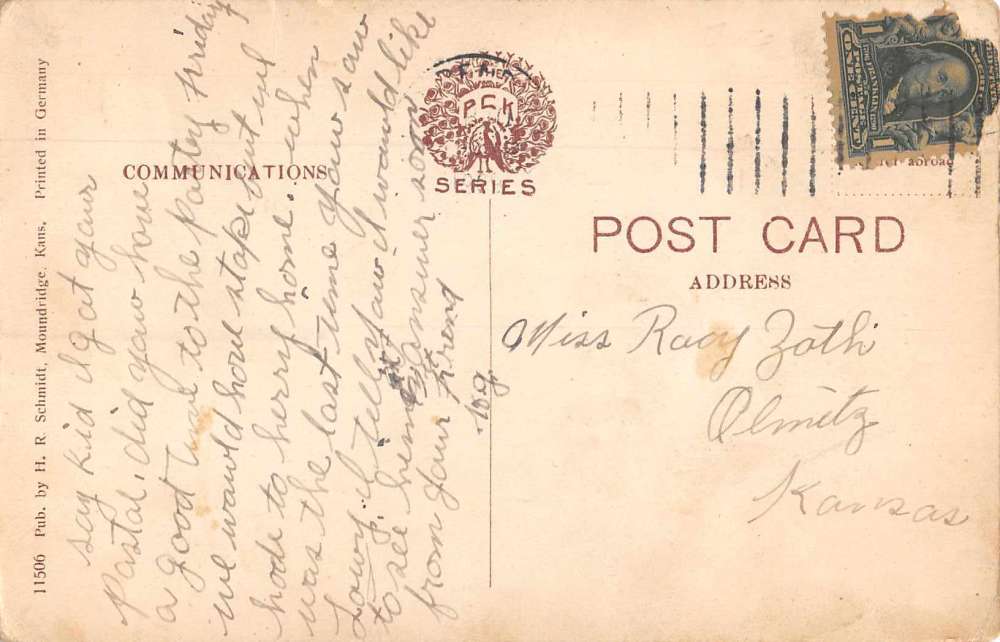 11506 Pub. by H. R. Schmidt, Moundridge, Kans. Printed in Germany
COMMUNICATIONS
PCK
SERIES
POST CARD
ADDRESS
UNITED STATES
1
1
abroad
say kid I got your
Postal, did you have
a good time to the Party Friday
we would have stope but we
hode to herry home. when
was the last time you saw
I tell you I would like
to see him answer soon
from your Friend
Miss Racy Zoth
Olmitz
Kansas